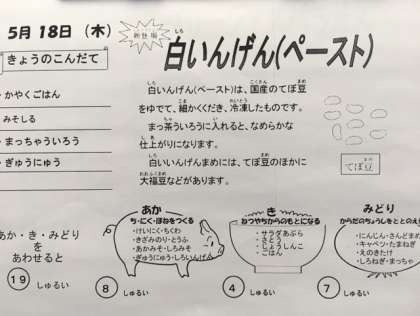 5月18日（木）
新登場
白いんげん(ペースト)
しろ
きょうのこんだて
・かやくごはん
・みそしる
・まっちゃういろう
・ぎゅうにゅう
白いんげん(ペースト)は、国産のてぼ豆
をゆでて、細かくくだき、冷凍したものです。
まっ茶ういろうに入れると、なめらかな
仕上がりになります。
白いいんげんまめには、てぼ豆のほかに
大福豆などがあります。
てぼ豆
あか・き・みどり
を
あわせると
19 しゅるい
あか
ち・にく・ほねをつくる
・けいにく・ちくわ
・きざみのり・とうふ
・あかみそ・しろみそ
・ぎゅうにゅう・しろいんげん
8 しゅるい
き
ねつやちからのもとになる
・サラダあぶら
・さとう
・しょうしんこ
・ごはん
4 しゅるい
みどり
からだのちょうしをととのえ
・にんじん・さんどまめ
・キャベツ・たまねぎ
・えのきたけ
・しろねぎ・まっちゃ
7 しゅるい